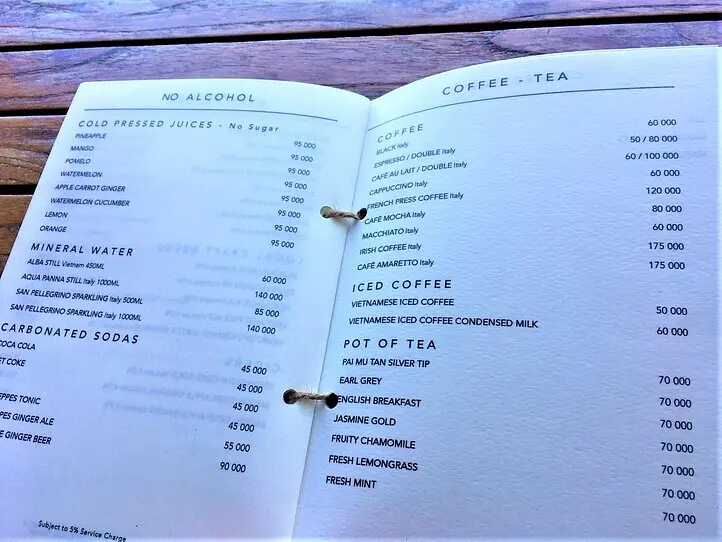 NO ALCOHOL
COLD PRESSED JUICES - No Sugar
PINEAPPLE 95 000
MANGO 95 000
POMELO 95 000
WATERMELON 95 000
APPLE CARROT GINGER 95 000
WATERMELON CUCUMBER 95 000
LEMON 95 000
ORANGE 95 000
MINERAL WATER
ALBA STILL Vietnam 450ML 60 000
AQUA PANNA STILL Italy 1000ML 140 000
SAN PELLEGRINO SPARKLING Italy 500ML 85 000
SAN PELLEGRINO SPARKLING Italy 1000ML 140 000
CARBONATED SODAS
COCA COLA 45 000
ET COKE 45 000
45 000
EPPES TONIC 45 000
PES GINGER ALE 55 000
E GINGER BEER 90 000
Subject to 5% Service Charge
COFFEE - TEA
COFFEE
BLACK Italy 60 000
ESPRESSO / DOUBLE Italy 50 / 80 000
CAFÉ AU LAIT / DOUBLE Italy 60 / 100 000
CAPPUCCINO Italy 60 000
FRENCH PRESS COFFEE Italy 120 000
CAFÉ MOCHA Italy 80 000
MACCHIATO Italy 60 000
IRISH COFFEE Italy 175 000
CAFÉ AMARETTO Italy 175 000
ICED COFFEE
VIETNAMESE ICED COFFEE 50 000
VIETNAMESE ICED COFFEE CONDENSED MILK 60 000
POT OF TEA
PAI MU TAN SILVER TIP 70 000
EARL GREY 70 000
ENGLISH BREAKFAST 70 000
JASMINE GOLD 70 000
FRUITY CHAMOMILE 70 000
FRESH LEMONGRASS 70 000
FRESH MINT 70 000